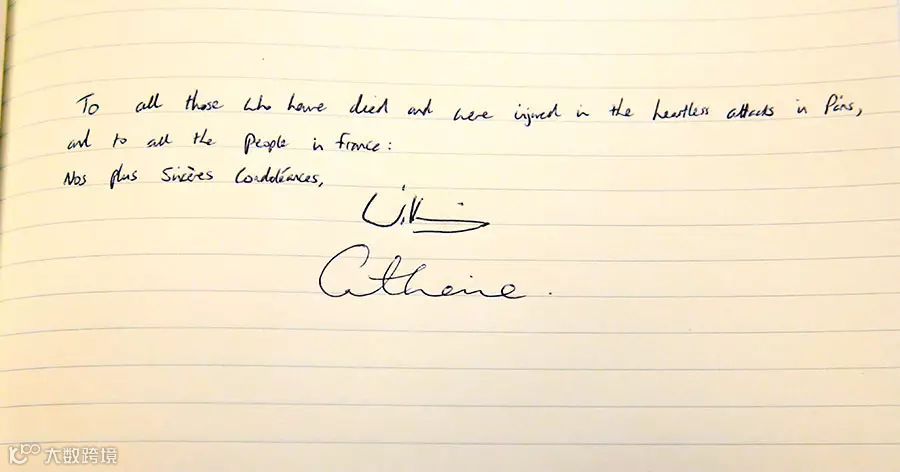 To all those who have died and were injured in the heartless attacks in Paris,
and to all the People in France:
Nos plus Sincères Condoléances,
Catherine.
大数跨境